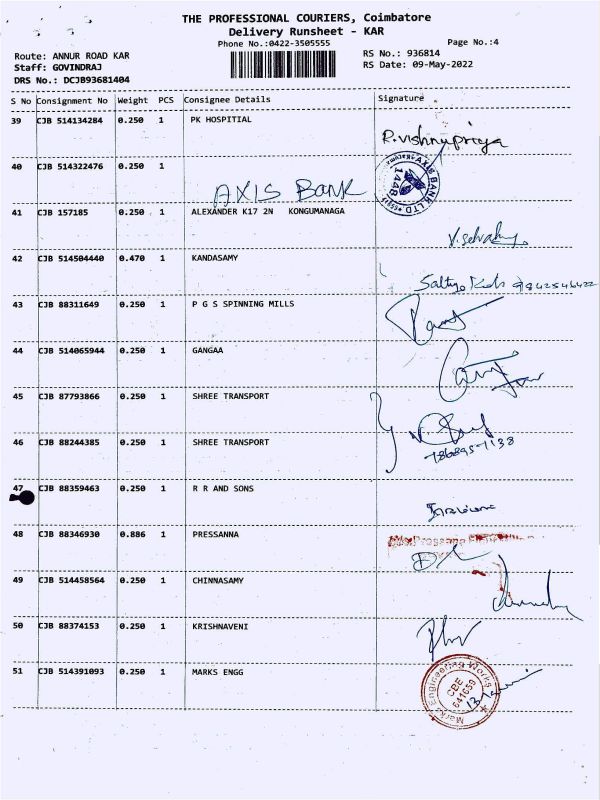 THE PROFESSIONAL COURIERS, Coimbatore
Delivery Runsheet - KAR
Phone No.:0422-3505555
Page No.:4
Route: ANNUR ROAD KAR
RS No.: 936814
Staff: GOVINDRAJ
RS Date: 09-May-2022
DRS No.: DCJB93681404
S No Consignment No Weight PCS Consignee Details Signature
39 CJB 514134284 0.250 1 PK HOSPITIAL
R.vishnupriya
40 CJB 514322476 0.250 1
AXIS BANK
AXIS BANK LTD
1448
41 CJB 157185 0.250 1 ALEXANDER K17 2N KONGUMANAGA
42 CJB 514504440 0.470 1 KANDASAMY
9842546422
43 CJB 88311649 0.250 1 P G S SPINNING MILLS
44 CJB 514065944 0.250 1 GANGAA
45 CJB 87793866 0.250 1 SHREE TRANSPORT
46 CJB 88244385 0.250 1 SHREE TRANSPORT
47 CJB 88359463 0.250 1 R R AND SONS
48 CJB 88346930 0.886 1 PRESSANNA
49 CJB 514458564 0.250 1 CHINNASAMY
50 CJB 88374153 0.250 1 KRISHNAVENI
51 CJB 514391093 0.250 1 MARKS ENGG
Mark Engineering Works
CBE
641659